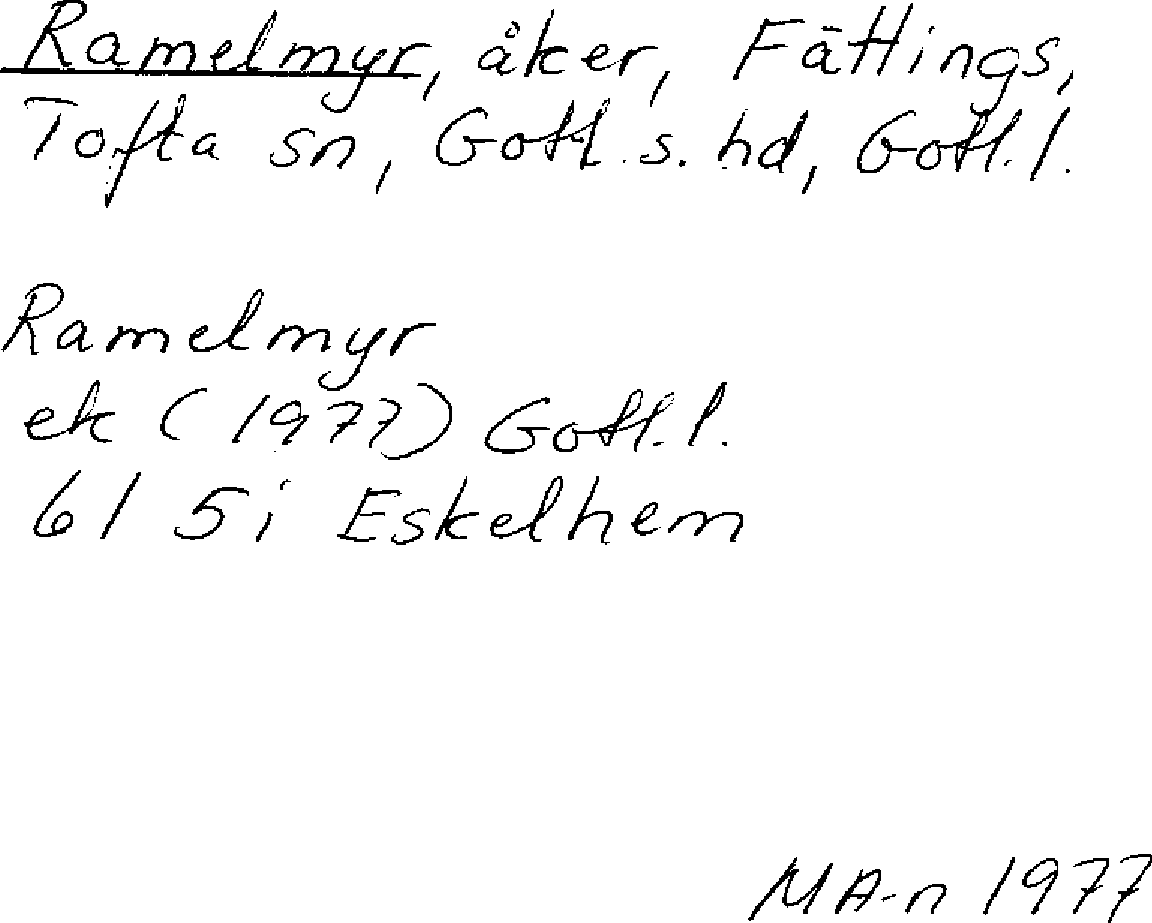 Ramelmyr, åker, Fättings,
Tofta sn, Gotl. s. hd, Gotl. l.
Ramelmyr
ek (1977) Gotl. l.
61 5i Eskelhem
MA-n 1977